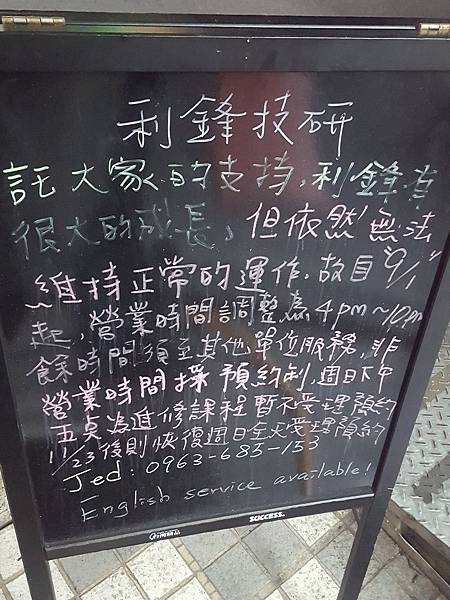 利鋒技研
託大家的支持,利鋒有
很大的成長,但依然無法
維持正常的運作,故自"9/1"
起,營業時間調整為4pm~10pm
餘時間須至其他單位服務,非
營業時間採預約制,週日下午
五点為進修課程暫不受理預約
11/23後則恢復週日全天受理預約
Jed: 0963-683-153
English service available!
SUCCESS.